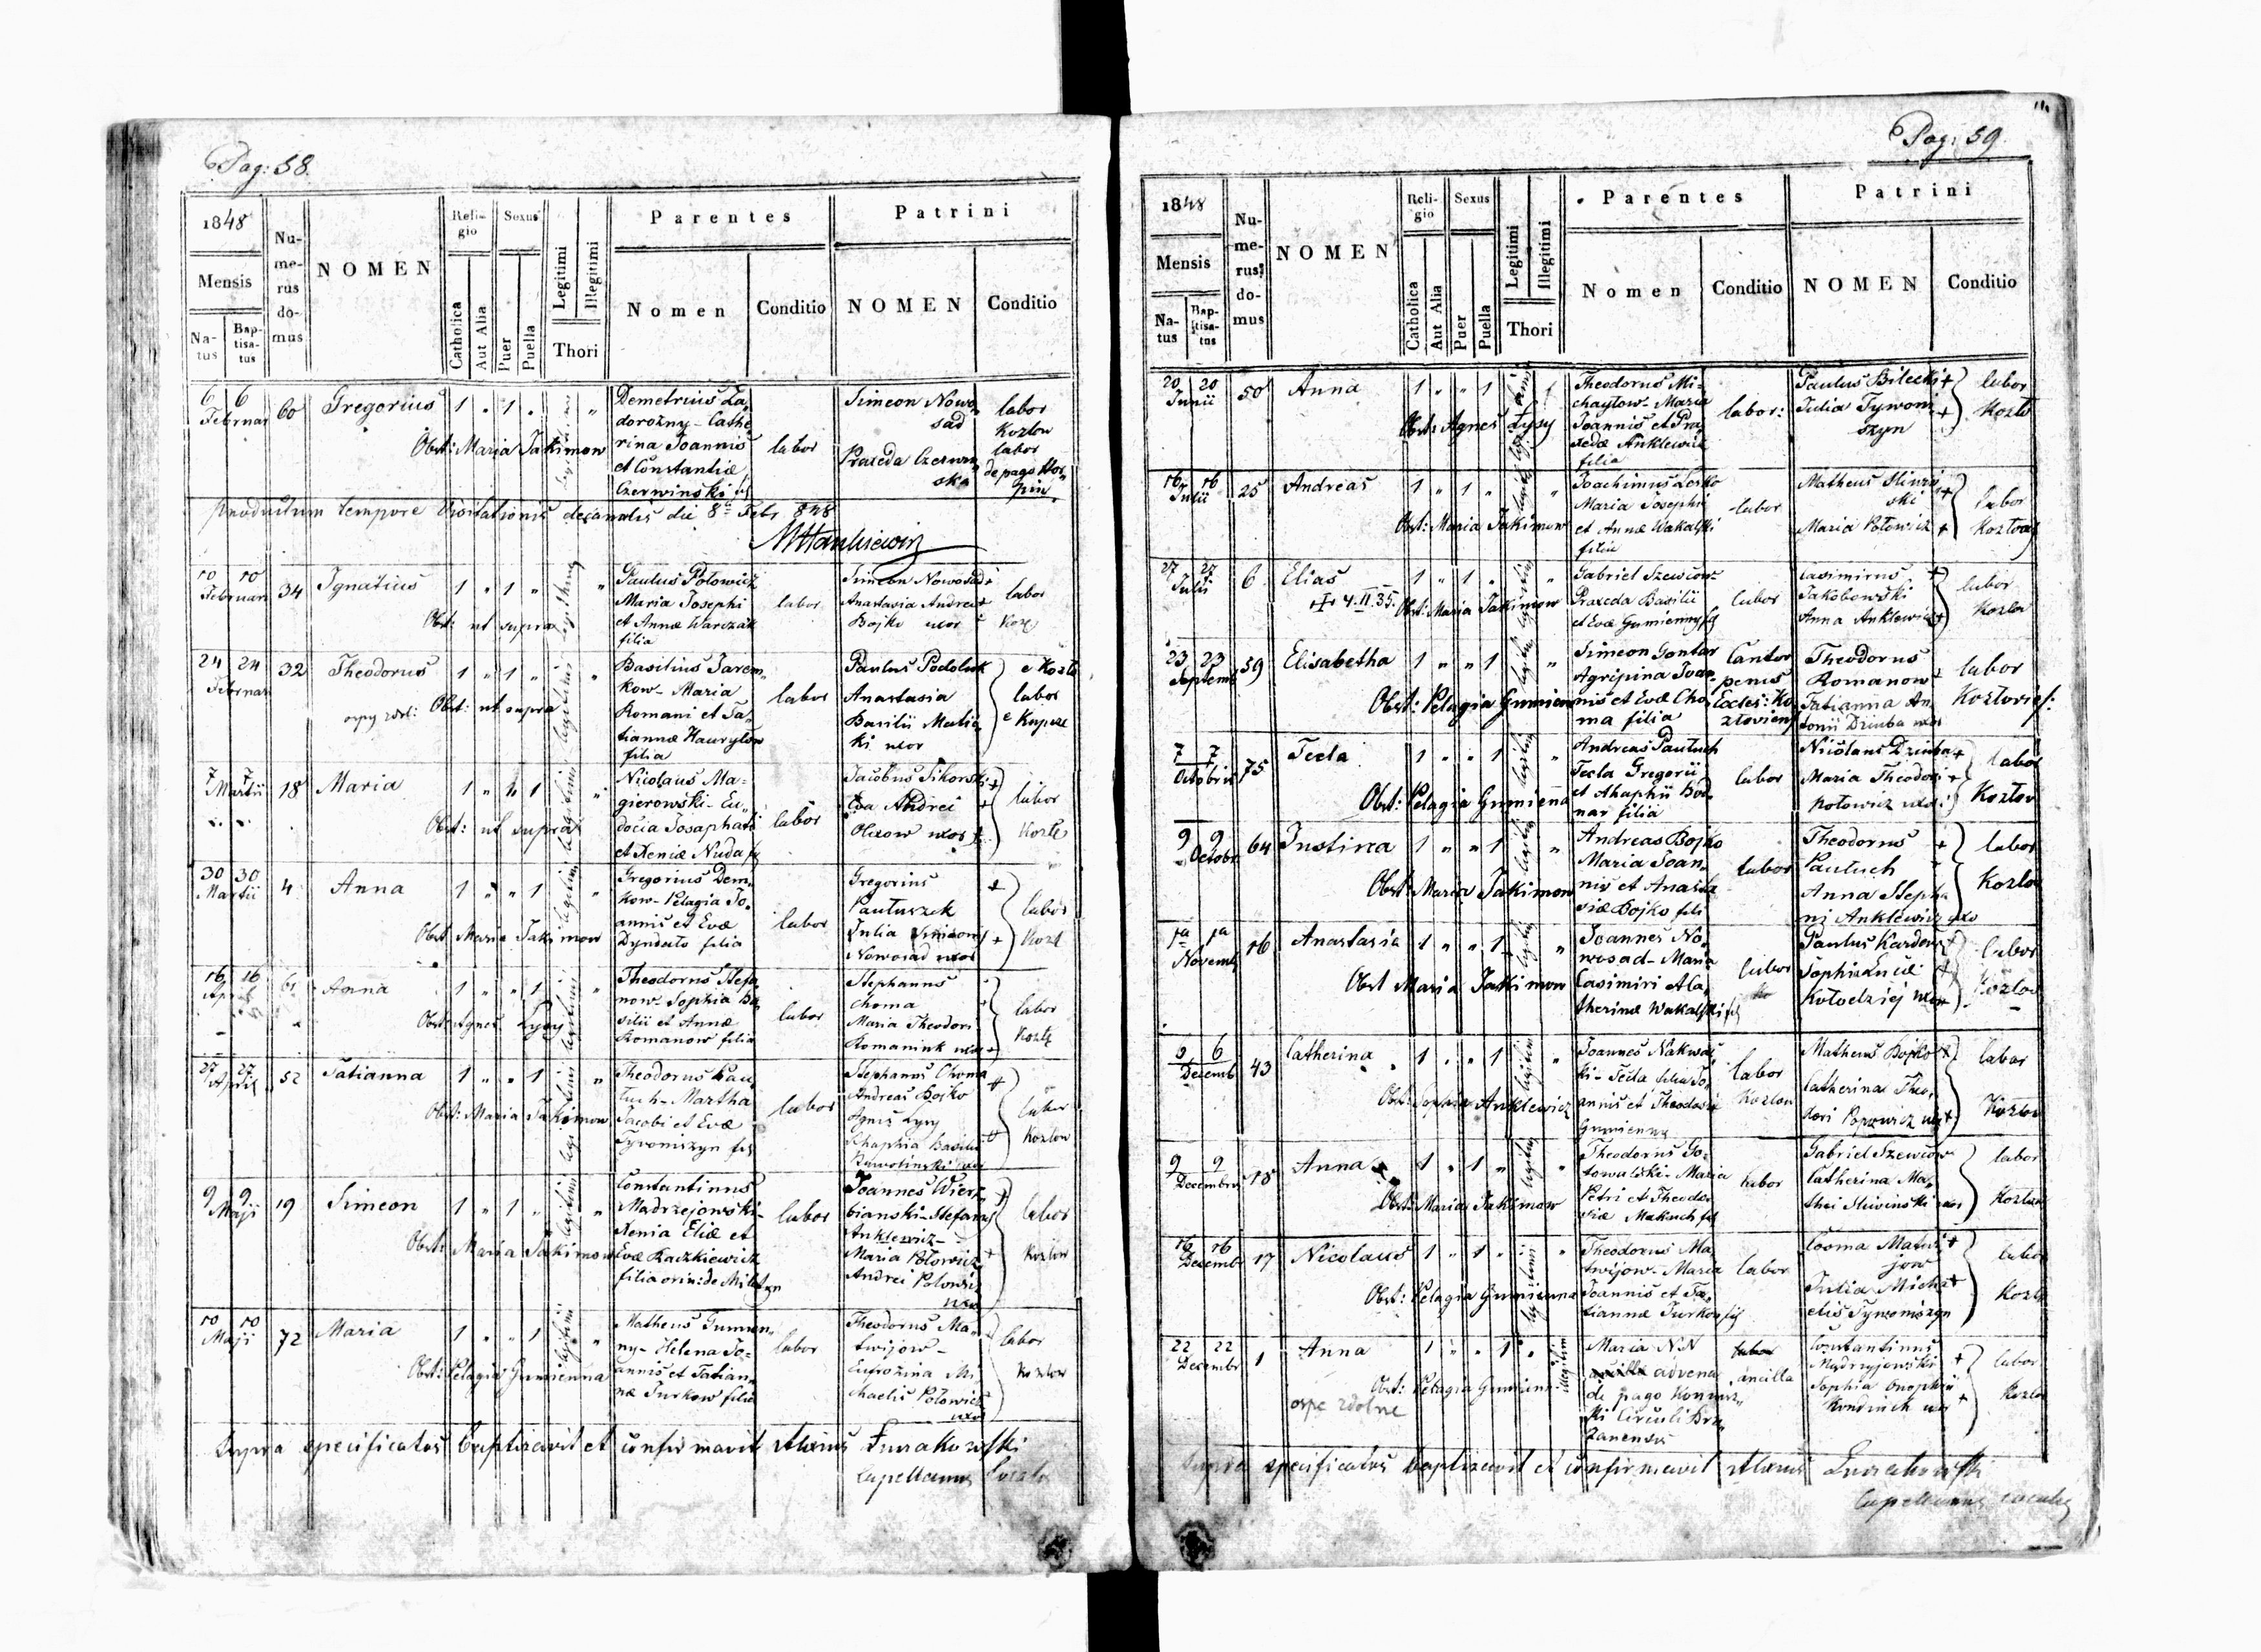 Pag: 58.
1848
Mensis
Na-
tus
Bap-
tisa-
tus
Nu-
me-
rus
do-
mus
NOMEN
Reli-
gio
Catholica
Aut Alia
Sexus
Puer
Puella
Legitimi
Illegitimi
Thori
Parentes
Nomen
Conditio
Patrini
NOMEN
Conditio
6 6
Februar
60
Gregorius
1 „ 1 „
Obst: Maria Jakimow
Demetrius Za„
dorożny - Cathe„
rina Joannis
et Constantiæ
Czerwinski
labor
Simeon Nowo„
sad
Praxeda Czerwin„
ska
labor
Kozlow
labor
de pago Hor„
pin
Productum tempore Visitationis decanalis die 8a Febr 848
10 10
Februar
34
Ignatius
1 „ 1 „
Obst: ut supra
Paulus Potowicz
Maria Josephi
et Annæ Warczak
filia
labor
Simeon Nowosad
Anastasia Andreæ
Bojko uxor
labor
Kozl
24 24
Februar
32
Theodorus
1 „ 1 „
Obst: ut supra
Basilius Jarem„
kow - Maria
Romani et Ta„
tiannæ Hawrylow
filia
labor
Paulus Podoluk
Anastasia
Basilii Matia
ki uxor
e Kozlo
labor
e Kupcze
7 7
Martii
18
Maria
1 „ „ 1
Obst: ut supra
Nicolaus Ma-
gierowski - Eu„
docia Josaphati
et Xeniæ Nuda
labor
Jacobus Sikorski
Eva Andrei
Olixow uxor
labor
Kozlo
30 30
Martii
4
Anna
1 „ „ 1
Obst Maria Jakimow
Gregorius Dem„
kow - Pelagia Jo„
annis et Evæ
Dyndato filia
labor
Gregorius
Pautuszek
Julia Simeonis
Nowosad uxor
labor
Kozl
16 16
April
61
Anna
1 „ „ 1
Obst: Agnes Lysy
Theodorus Stefa„
now - Sophia Ba„
silii et Annæ
Romanow filia
labor
Stephanus
Choma
Maria Theodori
Romaniuk uxor
labor
Kozlo
27 27
April
52
Tatianna
1 „ „ 1
Obst: Maria Jakimow
Theodorus Pau„
tuch - Martha
Jacobi et Evæ
Tywoniszyn
labor
Stephanus Choma
Andreas Bojko
Agnes Lysy
labor
Kozlow
9 9
Maji
19
Simeon
1 „ 1 „
Obst: Maria Jakimow
Constantinus
Madrzejowski -
Xenia Eliæ et
Evæ Raczkiewicz
labor
Joannes Wierz„
bianski - Stefan
Anklewicz -
Maria Potowicz
Andrei Potowicz
uxor
labor
Kozlow
10 10
Maji
72
Maria
1 „ „ 1
Obst: Pelagia Gumienna
Matheus Gumien„
ny - Helena Jo„
annis et Tatian„
næ Turkow filia
labor
Theodorus Ma„
twijow -
Eufrozina Mi„
chaelis Potowicz
uxor
labor
Kozlow
Supra specificatos baptizavit et confirmavit Alexius Zurakowski
Capellanus localis
Pag: 59.
1848
Mensis
Na-
tus
Bap-
tisa-
tus
Nu-
me-
rus
do-
mus
NOMEN
Reli-
gio
Catholica
Aut Alia
Sexus
Puer
Puella
Legitimi
Illegitimi
Thori
Parentes
Nomen
Conditio
Patrini
NOMEN
Conditio
20 20
Junii
50
Anna
1 „ „ 1
Obst: Agnes Lysy
Theodorus Mi-
chaylow - Maria
Joannis et Pra„
xedæ Anklewicz
filia
labor:
Paulus Bilecki
Julia Tywoni„
szyn
labor
Kozlo
16 16
Julii
25
Andreas
1 „ 1 „
Obst: Maria Jakimow
Joachimus Lesko
Maria Josephi
et Annæ Wakalski
filia
labor
Matheus Sliwin
ski
Maria Potowicz
labor
Kozlow
27 27
Julii
6
Elias
+ 4.II.35.
1 „ 1 „
Obst: Maria Jakimow
Gabriel Szewciow
Praxeda Basilii
et Evæ Gumienny
labor
Casimirus
Jakobowski
Anna Anklewicz
labor
Kozlow
23 23
Septemb
59
Elisabetha
1 „ „ 1
Obst: Pelagia Gumien
Simeon Gontar
Agripina Joan„
nis et Evæ Cho„
ma filia
Cantor
penes
Eccles: Ko
zlovien
Theodorus
Romanow
Tatianna An
tonii Dziuba uxor
labor
Kozlovies:
7 7
Octobris
75
Tecla
1 „ „ 1
Obst: Pelagia Gumienna
Andreas Pautuch
Tecla Gregorii
et Ahaphii Bod„
nar filia
labor
Nicolaus Dziuba
Maria Theodori
Potowicz uxor
labor
Kozlow
9 9
Octobr
64
Justina
1 „ „ 1
Obst: Maria Jakimow
Andreas Bojko
Maria Joan„
nis et Anasta
siæ Bojko fili
labor
Theodorus
Pautuch
Anna Stepha
ni Anklewicz uxo
labor
Kozlow
1a 1a
Novemb
16
Anastasia
1 „ „ 1
Obst Maria Jakimow
Joannes No„
wosad - Maria
Casimiri et Ca„
therinæ Wakalski
labor
Paulus Kardow
Sophia Lucæ
Kolodziej uxor
labor
Kozlow
6
Decemb
43
Catherina
1 „ „ 1
Obst: Sophia Anklewicz
Joannes Nakwas
ki - Tecla filia Jo„
annis et Theodosiæ
Gumienny
labor
Kozlow
Matheus Bojko
Catherina Theo„
dori Popowicz
labor
Kozlow
9 9
Decembris
18
Anna
1 „ 1 „
Obst: Maria Jakimow
Theodorus Go„
towalski - Maria
Petri et Theodo„
siæ Makuch
labor
Gabriel Szewciow
Catherina Ma„
thei Sliwinski uxor
labor
Kozlow
16 16
Decembr
17
Nicolaus
1 „ 1 „
Obst: Pelagia Gumienna
Theodorus Ma„
twijow - Maria
Joannis et Ta„
tiannæ Turkow
labor
Cosma Matwi„
jow
Julia Micha
elis Tywoniszyn
labor
Kozlo
22 22
Decembr
1
Anna
ospe zdolne
1 „ „ 1
Obst: Pelagia Gumienn
Maria N.N
advena
de pago Koniuz„
ki Circuli Brze„
zanensis
ancilla
Constantinus
Mądrzyjowski
Sophia Onophrii
Kondruch uxor
labor
Kozlow
Supra specificatos baptizavit et confirmavit Alexius Zurakowski
Capellanus localis